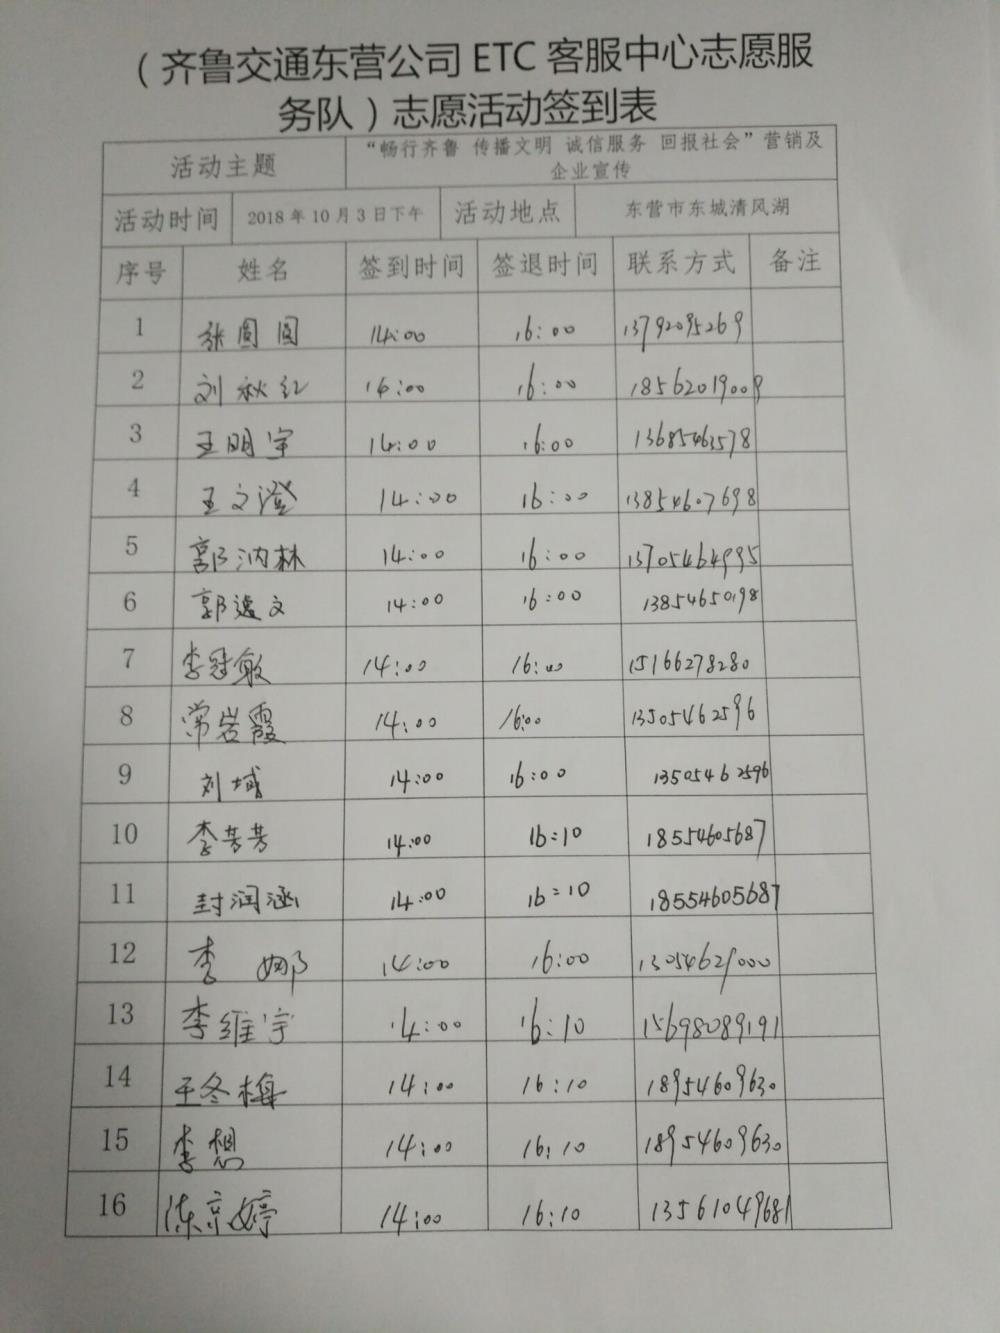 （齐鲁交通东营公司 ETC 客服中心志愿服
务队）志愿活动签到表
活动主题 “畅行齐鲁 传播文明 诚信服务 回报社会”营销及
企业宣传
活动时间 2018 年 10 月 3 日下午 活动地点 东营市东城清风湖
序号 姓名 签到时间 签退时间 联系方式 备注
1 张圆圆 14:00 16:00 13792095269
2 刘秋红 14:00 16:00 18562019009
3 王明宇 14:00 16:00 13685463578
4 王文澄 14:00 16:00 13854607698
5 郭汭林 14:00 16:00 13705464995
6 郭逸文 14:00 16:00 13854650198
7 李冠敏 14:00 16:00 15166278280
8 常岩霞 14:00 16:00 13505462596
9 刘域 14:00 16:00 13505462596
10 李芳芳 14:00 16:10 18554605687
11 封润涵 14:00 16:10 18554605687
12 李娜 14:00 16:00 13054629000
13 李维宇 14:00 16:10 15698089191
14 王冬梅 14:00 16:10 18954609630
15 李想 14:00 16:10 18954609630
16 陈京婷 14:00 16:10 13561049681